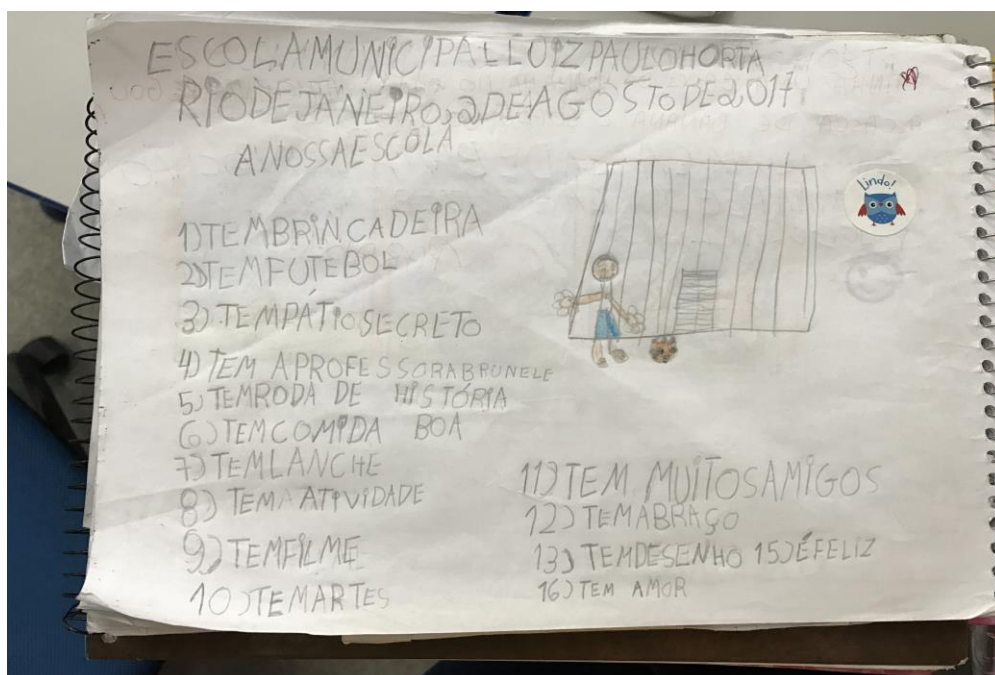 ESCOLAMUNICIPALLUIZPAULOHORTA
RIODEJANEIRO,2DEAGOSTODE2017
ANOSSAESCOLA
Lindo!
1)TEMBRINCADEIRA
2)TEMFUTEBOL
3)TEMPÁTIOSECRETO
4)TEM APROFESSORABRUNELE
5)TEMRODA DE HISTÓRIA
6)TEMCOMIDA BOA
7)TEMLANCHE
8)TEMAATIVIDADE
9)TEMFILME
10)TEMARTES
11)TEM MUITOSAMIGOS
12)TEMABRAÇO
13)TEMDESENHO 15)ÉFELIZ
16)TEM AMOR